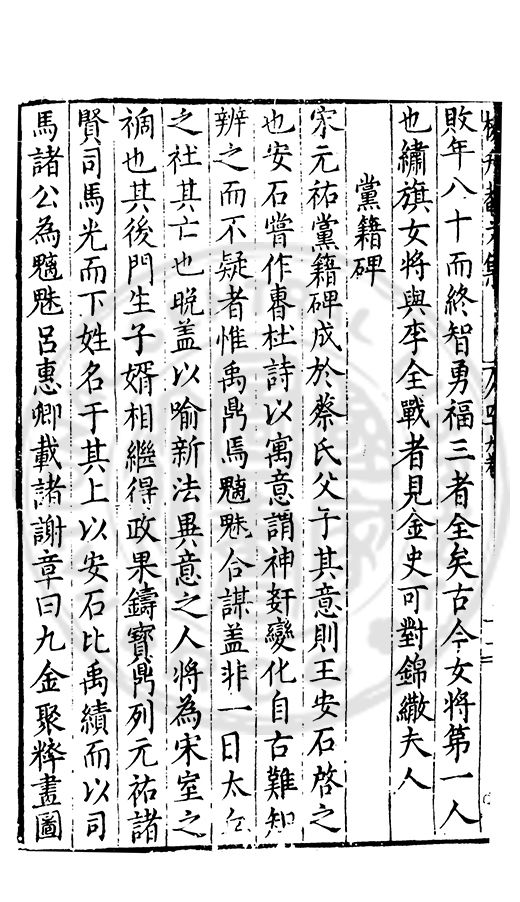 敗年八十而終智勇福三者全矣古今女將第一人
也繡旗女將與李全戰者見金史可對錦繖夫人
黨籍碑
宋元祐黨籍碑成於蔡氏父子其意則王安石啓之
也安石嘗作曹杜詩以寓意謂神奸變化自古難知
辨之而不疑者惟禹鼎焉魑魅合謀蓋非一日太丘
之社其亡也晚盖以喻新法異意之人將為宋室之
禍也其後門生子婿相繼得政果鑄寶鼎列元祐諸
賢司馬光而下姓名于其上以安石比禹績而以司
馬諸公為魑魅呂惠卿載諸謝章曰九金聚粹畫圖